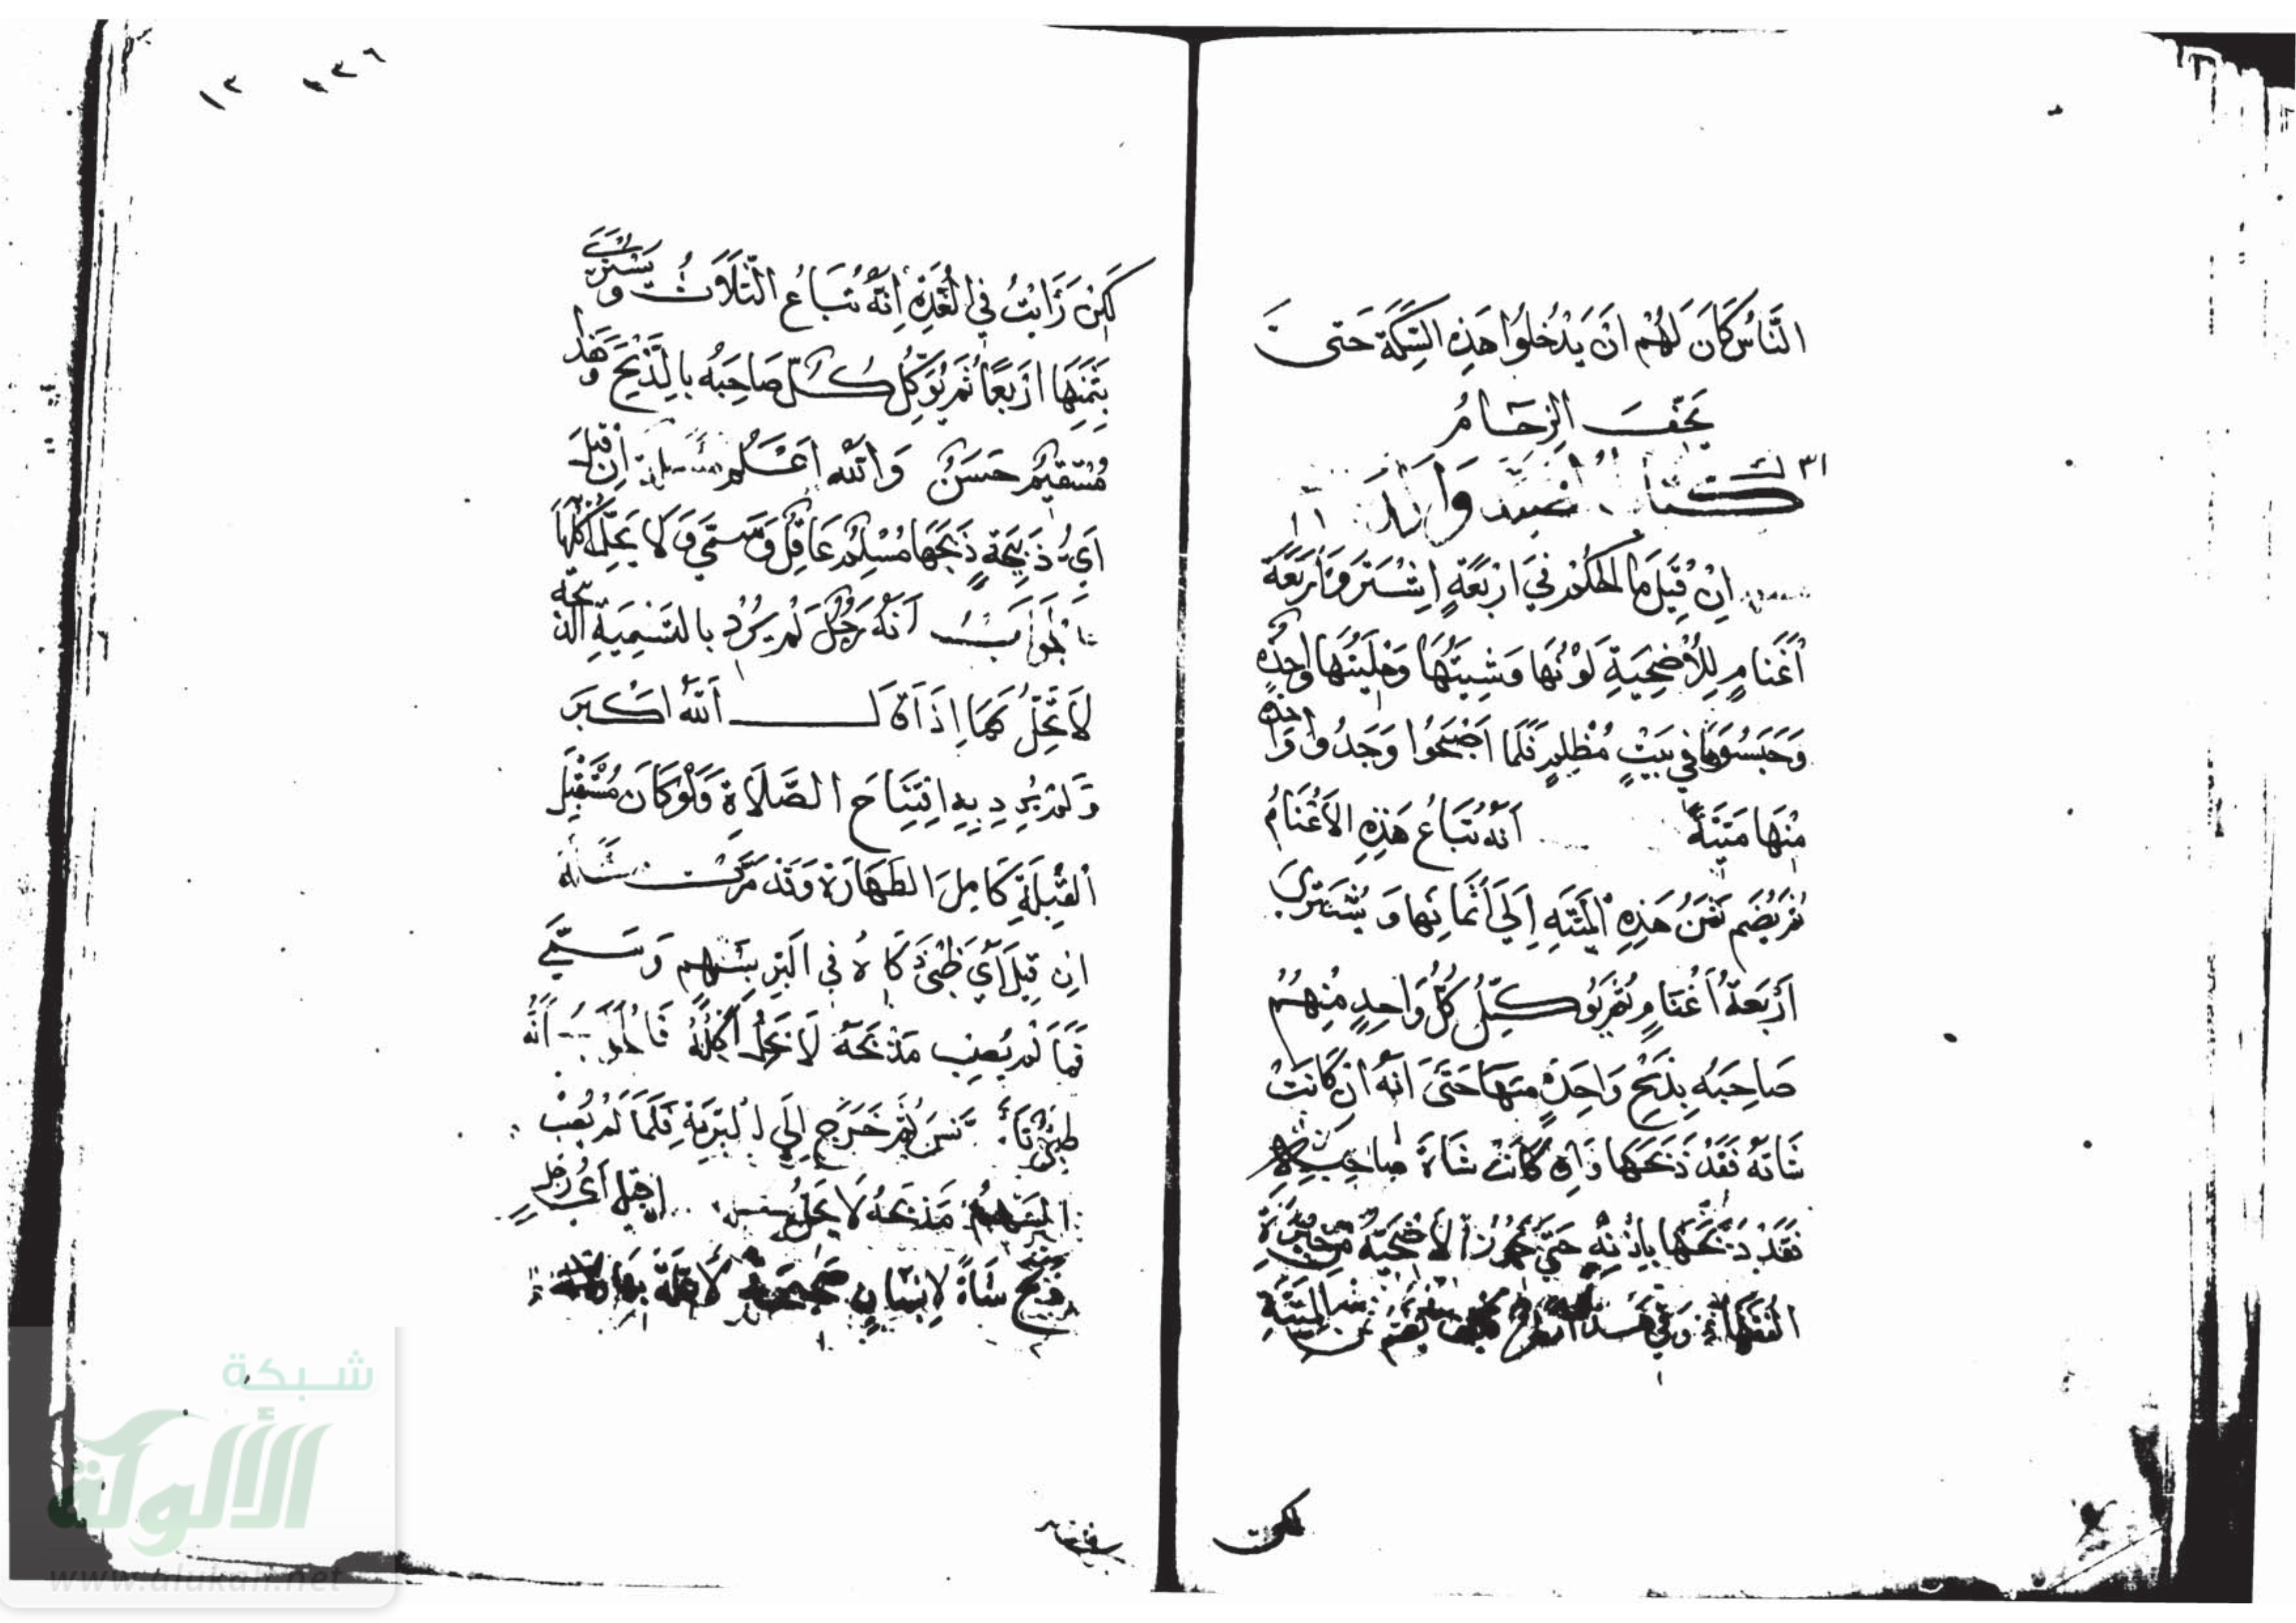 النَّاسُ كَانَ لَهُمْ اَنْ يَدْخُلُوا هَذِهِ السِّكَّةَ حَتّى
يَخِفَّ الزِّحَامُ
٣١ كتاب الصيد والذبائح
اِنْ قِيْلَ مَا الحُكْمُ فِي اَرْبَعَةٍ اِشْتَرَوْا اَرْبَعَةَ
اَغْنَامٍ لِلْاُضْحِيَةِ لَوْنُهَا وَشِيَتُهَا وَحِلْيَتُهَا وَاحِدَة
وَحَبَسُوهَا فِي بَيْتٍ مُظْلِمٍ فَلَمَّا اَصْبَحُوا وَجَدُوا وَاحِدَة
مِنْهَا مَيْتَةً اَنَّهُ تُبَاعُ هَذِهِ الاَغْنَامُ
ثُمَّ يُضَم ثَمَنُ هَذِهِ المَيْتَةِ اِلَى اَثْمَانِهَا وَيُشْتَرَى
اَرْبَعَةُ اَغْنَامٍ ثُمَّ يُوَكِّلُ كُلُّ وَاحِدٍ مِنْهُمْ
صَاحِبَهُ بِذَبْحِ وَاحِدَةٍ مِنْهَا حَتَّى اَنَّهُ اِنْ كَانَتْ
شَاتَهُ فَقَدْ ذَبَحَهَا وَاِنْ كَانَتْ شَاةَ صَاحِبِهِ
فَقَدْ ذَبَحَهَا بِاِذْنِهِ حَتَّى تَجُوزُ الاُضْحِيَّةُ
الفُقَهَاءِ وَفِي هَذَا يُضَم ثَمَنُ المَيْتَةِ
لكن
لَكِنْ رَأَيْتُ فِي العُدَّةِ اِنَّهُ تُبَاعُ الثَّلَاثُ وَيُشْتَرَى
بِثَمَنِهَا اَرْبَعًا ثُمَّ يُوَكِّلُ كُلٌّ صَاحِبَهُ بِالذَّبْحِ وَهَذَا
مُسْتَقِيمٌ حَسَنٌ وَاللهُ اَعْلَمُ مسئلة اِنْ قِيْلَ
اَيُّ ذَبِيْحَةٍ ذَبَحَهَا مُسْلِمٌ عَاقِلٌ وَسَمَّى وَلَا يَحِلُّ اَكْلُهَا
فَالجَوَابُ اَنَّهُ رَجُلٌ لَمْ يُرِدْ بِالتَسْمِيَةِ الذَّبِيحَة
لَا تَحِلُّ كَمَا اِذَا قَالَ اَللهُ اَكْبَر
وَلَمْ يُرِدْ بِهِ افْتِتَاحَ الصَّلَاةِ وَلَوْ كَانَ مُسْتَقْبِلَ
القِبْلَةِ كَامِلَ الطَهَارَةِ وَقَدْ مَرَّتْ
اِنْ قِيْلَ اَيُّ ظَبْيٍ ذَكَاهُ فِي البَرِّ بِسَهْمٍ وَسَمَّى
فَمَا لَمْ يُصِبْ مَذْبَحَهُ لَا يَحِلُّ اَكْلُهُ فَالجَوَابُ اَنَّهُ
ظَبْيٌ ثُمَّ خَرَجَ اِلَى البَرِيَّةِ فَلَمَّا لَمْ يُصِبْ
السَّهْمُ مَذْبَحَهُ لَا يَحِلُّ اِنْ قِيلَ اَيُّ رَجُلٍ
ذَبَحَ شَاةً لِاِنْسَانٍ صَحِيْحَةً لَا عِلَّةَ بِهَا
١٣٦ ١٣
شبكة
الألوكة
www.alukah.net